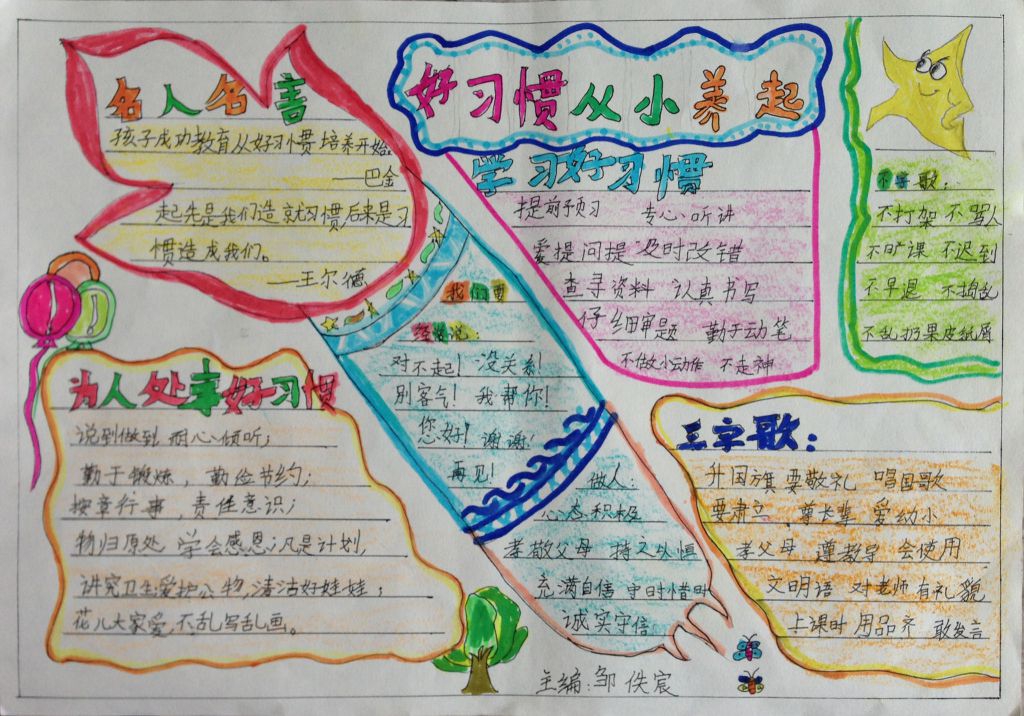 好习惯从小养起
名人名言
孩子成功教育从好习惯培养开始
——巴金
起先是我们造就习惯后来是习
惯造成我们。
——王尔德
学习好习惯
提前预习 专心听讲
爱提问提 及时改错
查寻资料 认真书写
仔细审题 勤于动笔
不做小动作 不走神
不字歌：
不打架 不骂人
不旷课 不迟到
不早退 不捣乱
不乱扔果皮纸屑
我们要
经常说：
对不起！没关系！
别客气！我帮你！
您好！谢谢！
再见！
做人：
心态积极
孝敬父母 持之以惧
充满自信 守时惜时
诚实守信
为人处事好习惯
说到做到 耐心倾听；
勤于锻炼，勤俭节约；
按章行事，责任意识；
物归原处 学会感恩；凡是计划，
讲究卫生爱护公物，清洁好娃娃；
花儿大家爱，不乱写乱画。
三字歌：
升国旗 要敬礼 唱国歌
要肃立 尊长辈 爱幼小
孝父母 遵教导 会使用
文明语 对老师 有礼貌
上课时 用品齐 敢发言
主编：邹佚宸